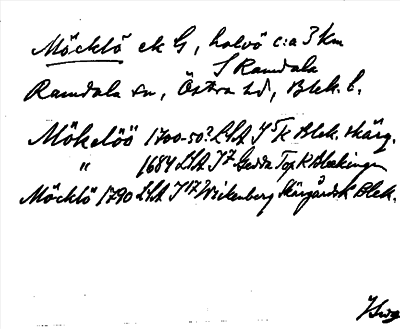 Möcklö ek G, halvö c:a 3 km
S Ramdala
Ramdala sn, Östra hd, Blek. l.
Mökelöö 1700-50? LSA J5 K Blek. skärg.
" 1684 LSA J7 Gedda Top K Bleckingen
Möcklö 1790 LSA J17? Wickenberg Skärgårdsk Blek.